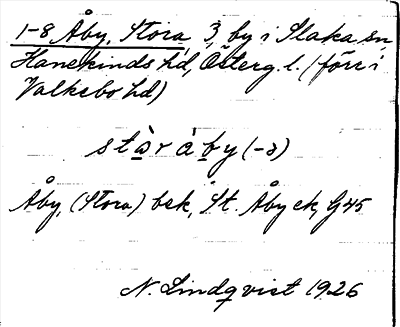 1-8 Åby, Stora, 3, by i Slaka sn
Hanekinds hd, Österg. l. (förr i
Valkebo hd)
stàràby (-3)
Åby, (Stora) bek, St. Åby ek, G45
N. Lindqvist 1926